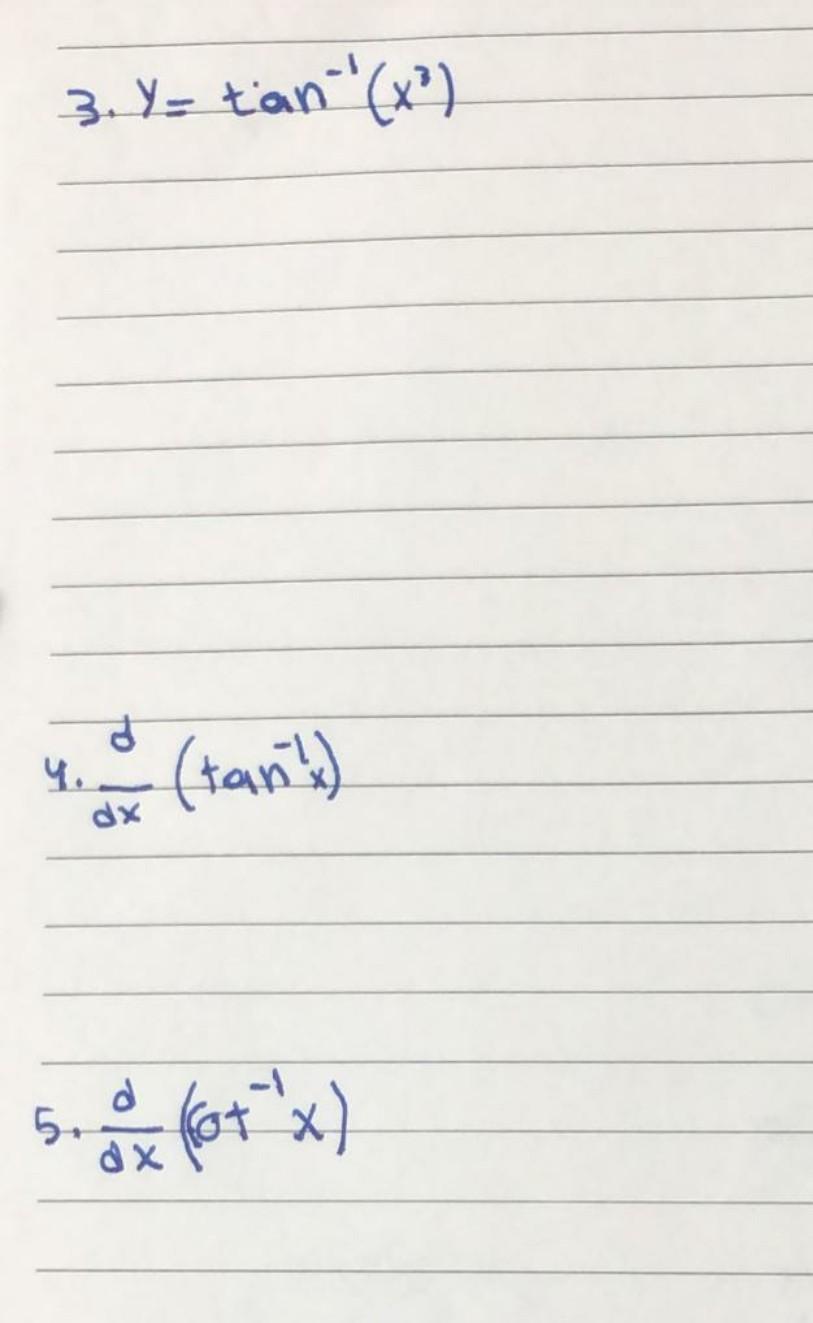 3. y = tan⁻¹(x³)
4. d/dx (tan⁻¹x)
5. d/dx (cot⁻¹x)